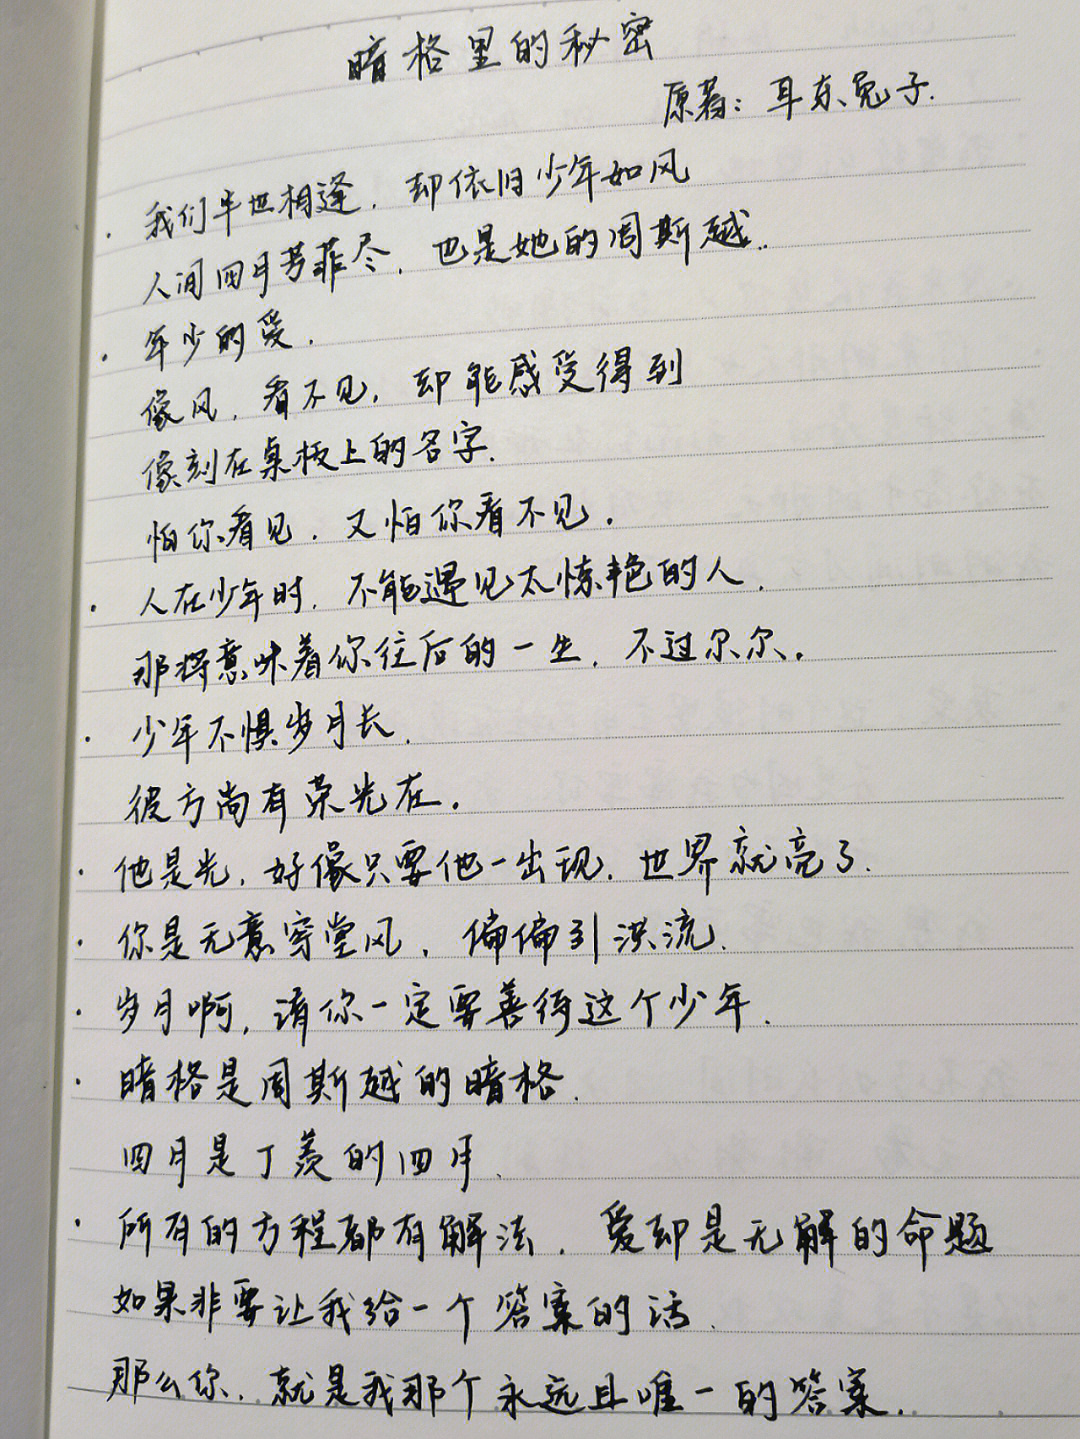 暗格里的秘密
原著：耳东兔子.
· 我们半世相逢，却依旧少年如风
人间四月芳菲尽，也是她的周斯越..
· 年少的爱，
像风，看不见，却能感受得到
像刻在桌板上的名字.
怕你看见，又怕你看不见.
· 人在少年时，不能遇见太惊艳的人，
那将意味着你往后的一生，不过尔尔.
· 少年不惧岁月长，
彼方尚有荣光在.
· 他是光，好像只要他一出现，世界就亮了.
· 你是无意穿堂风，偏偏引洪流.
· 岁月啊，请你一定要善待这个少年.
· 暗格是周斯越的暗格.
四月是丁羡的四月.
· 所有的方程都有解法，爱却是无解的命题
如果非要让我给一个答案的话.
那么你，就是我那个永远且唯一的答案.